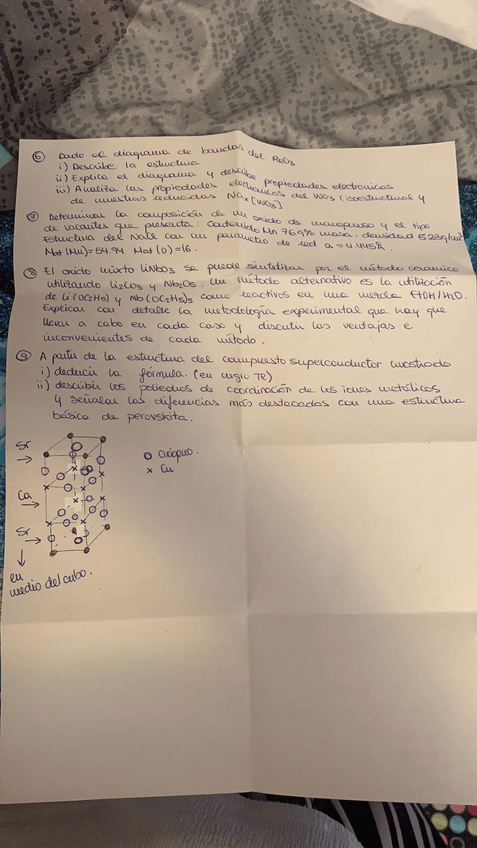 ⑥ Dado el diagrama de bandas del ReO₃
i) Describe la estructura
ii) Explica el diagrama y describe propiedades electronicas
iii) Analiza las propiedades electronicas del WO₃ (isoestructural y
de muestras reducidas NaₓWO₃)
⑦ Determinar la composición de un oxido de manganeso y el tipo
de vacantes que presenta: contenido Mn 76,9% masa. densidad 5,23g/
estructura del NaCl con un parametro de red a = 4.445Å
Mat (Mn) = 54.94 Mat (O) = 16.
⑧ El oxido mixto LiNbO₃ se puede sintetizar por el método ceramico
utilizando Li₂CO₃ y Nb₂O₅. Un método alternativo es la utilización
de Li(OC₂H₅) y Nb(OC₂H₅)₅ como reactivos en una mezcla EtOH/H₂O.
Explicar con detalle la metodología experimental que hay que
llevar a cabo en cada caso y discutir las ventajas e
inconvenientes de cada método.
⑨ A partir de la estructura del compuesto superconductor mostrado
i) deducir la fórmula. (en negro Tl)
ii) describir los poliedros de coordinación de los iones metálicos
y señalar las diferencias más destacadas con una estructura
básica de perovskita.
Sr
Ca
Sr
O Oxigeno.
x Cu
en
medio del cubo.